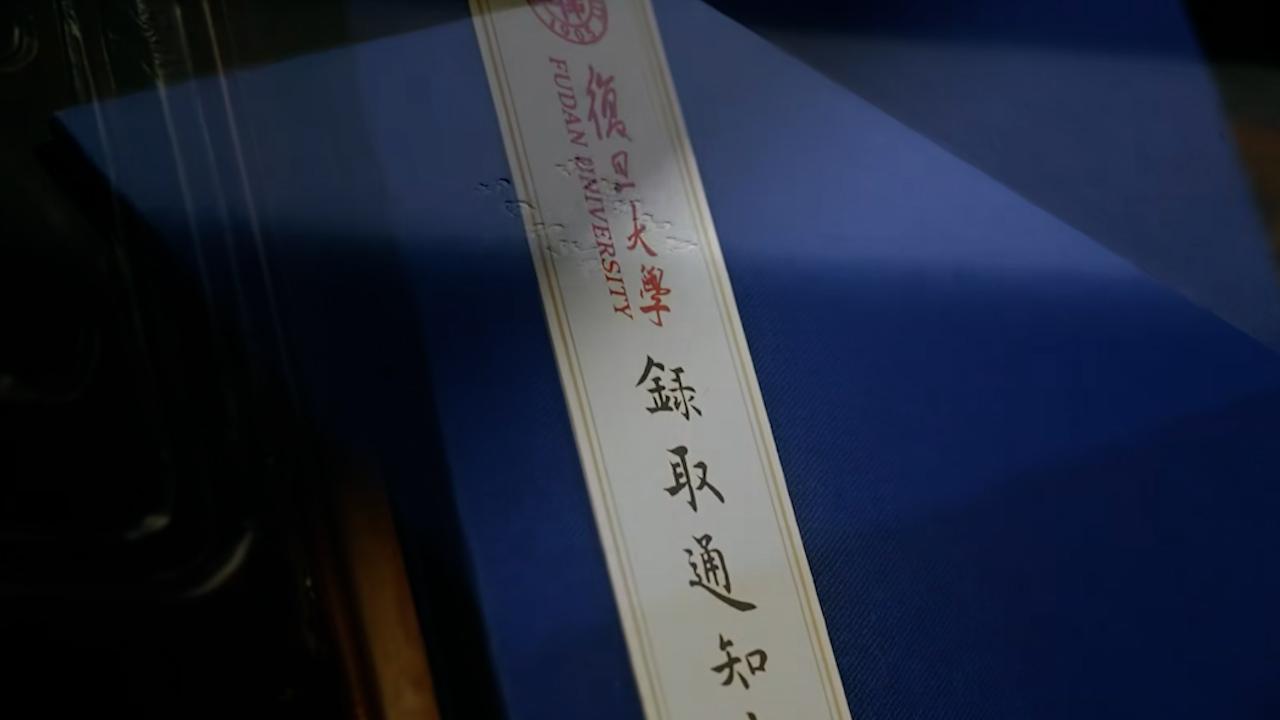 1905
復旦大學
FUDAN UNIVERSITY
錄取通知